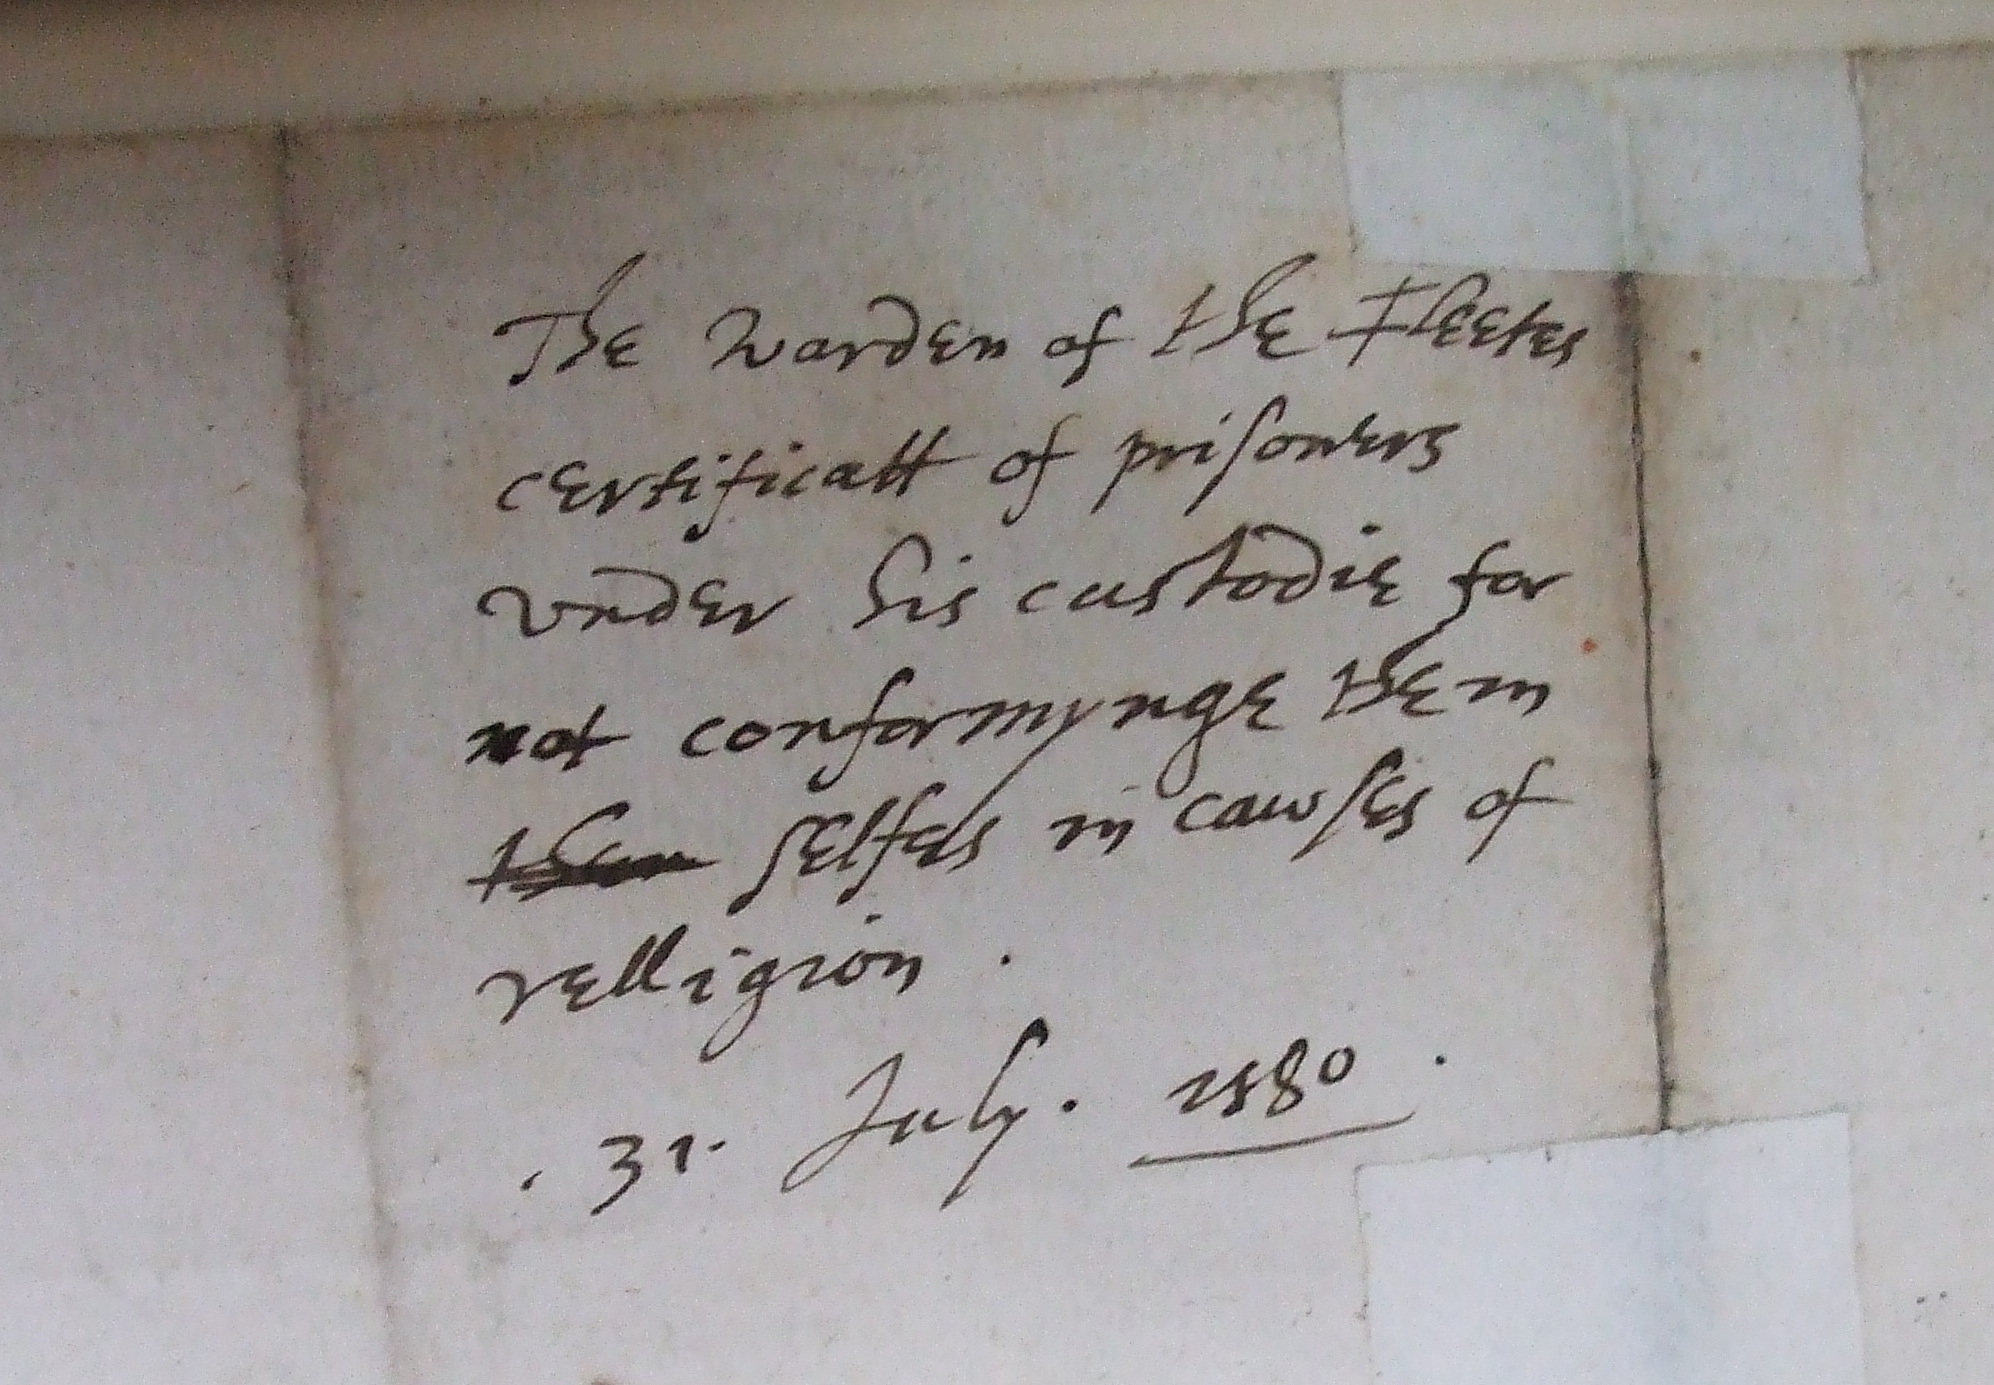 The warden of the Fleetes
certificatt of prisoners
vnder his custodie for
not conformynge them
them selfes in cawses of
relligion .
. 31. July . 1580 .